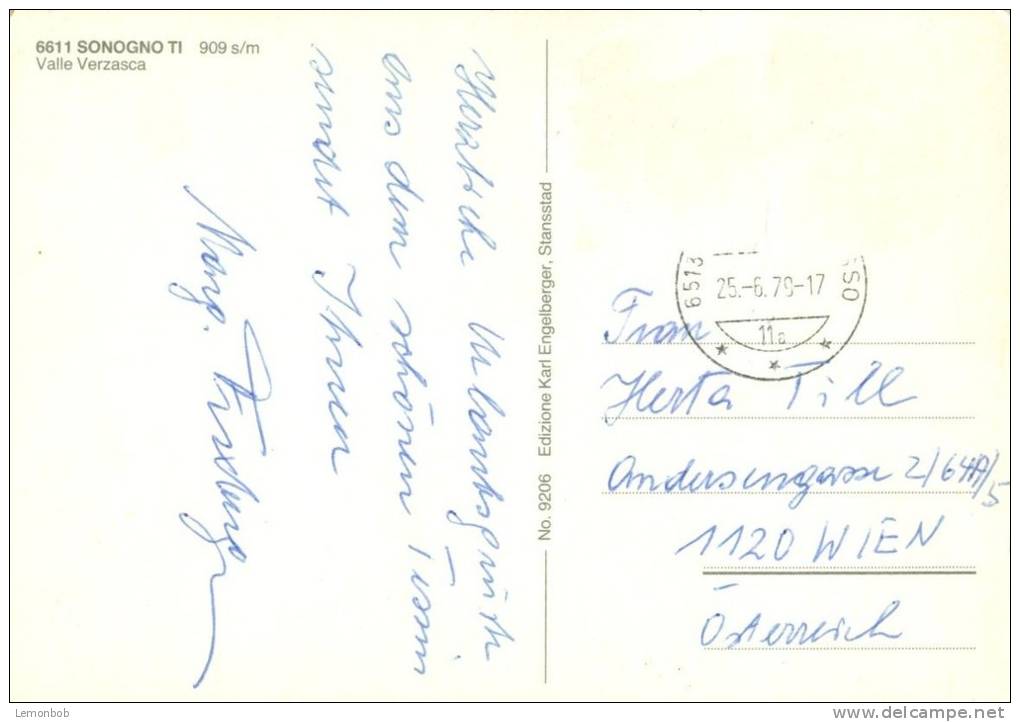 6611 SONOGNO TI 909 s/m
Valle Verzasca
Herzliche Urlaubsgrüße
aus dem schönen Tessin
sendet Ihnen
Marg.
No. 9206 Edizione Karl Engelberger, Stansstad
6513
25.-6.79-17
11a
OSSO
Frau
Herta Till
Andersengasse 2/64A/5
1120 WIEN
Österreich
Lemonbob
delcampe.net